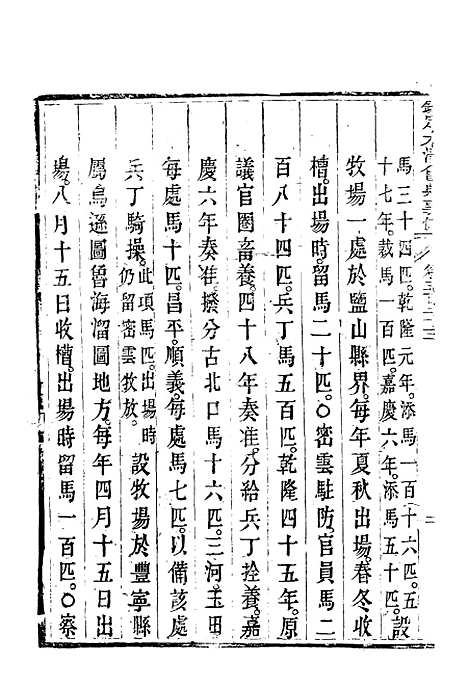 欽定大清會典事例
馬三十四匹。乾隆元年。添馬一百十六匹。五
十七年。裁馬一百匹。嘉慶六年。添馬五十匹。設
牧場一處於鹽山縣界。每年夏秋出場。春冬收
槽。出場時。留馬二十匹。○密雲駐防。官員馬二
百八十四匹。兵丁馬五百匹。乾隆四十五年。原
議官圈畜養。四十八年奏准。分給兵丁拴養。嘉
慶六年奏准。撥分古北口馬十六匹。三河。玉田
每處馬十匹。昌平。順義。每處馬七匹。以備該處
兵丁騎操。此項馬匹。出場時仍留密雲牧放。設牧場於豐寧縣
屬烏遜圖魯海溜圖地方。每年四月十五日出
場。八月十五日收槽。出場時留馬一百匹。○察